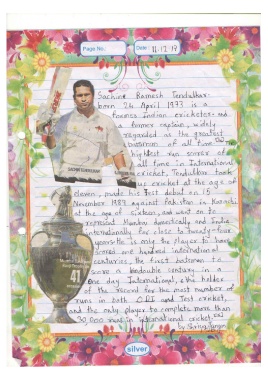 Page No.
Date: 11-12-17
Sachin Ramesh Tendulkar
born 24 April 1973 is a
former Indian cricketer and
a former captain, widely
regarded as the greatest
batsman of all time. The
highest run scorer of
all time in International
cricket, Tendulkar took
up cricket at the age of
eleven, made his Test debut on 15
November 1989 against Pakistan in Karachi
at the age of sixteen, and went on to
represent Mumbai domestically and India
internationally for close to twenty-four
years. He is only the player to have
scored one hundred international
centuries, the first batsman to
score a double century in a
one day International, the holder
of the record for the most number of
runs in both O.D.I and Test cricket,
and the only player to complete more than
30,000 runs in international cricket.
41
silver